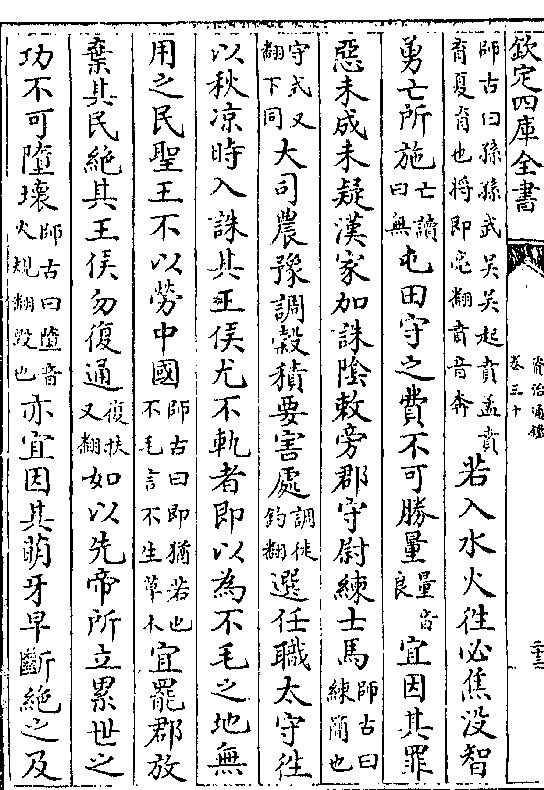 欽定四庫全書
資治通鑑
卷三十
二十三
師古曰孫孫武吳吳起賁孟賁
育夏育也將即亮翻賁音奔
若入水火往必焦没智
勇亡所施亡讀曰無屯田守之費不可勝量量音良宜因其罪
惡未成未疑漢家加誅陰敕旁郡守尉練士馬師古曰練簡也
守式又翻下同大司農豫調穀積要害處調徒釣翻選任職太守往
以秋凉時入誅其王侯尤不軌者即以為不毛之地無
用之民聖王不以勞中國師古曰即猶若也不毛言不生草木宜罷郡放
棄其民絶其王侯勿復通復扶又翻如以先帝所立累世之
功不可墮壊師古曰墮音火規翻毁也亦宜因其萌牙早斷絶之及